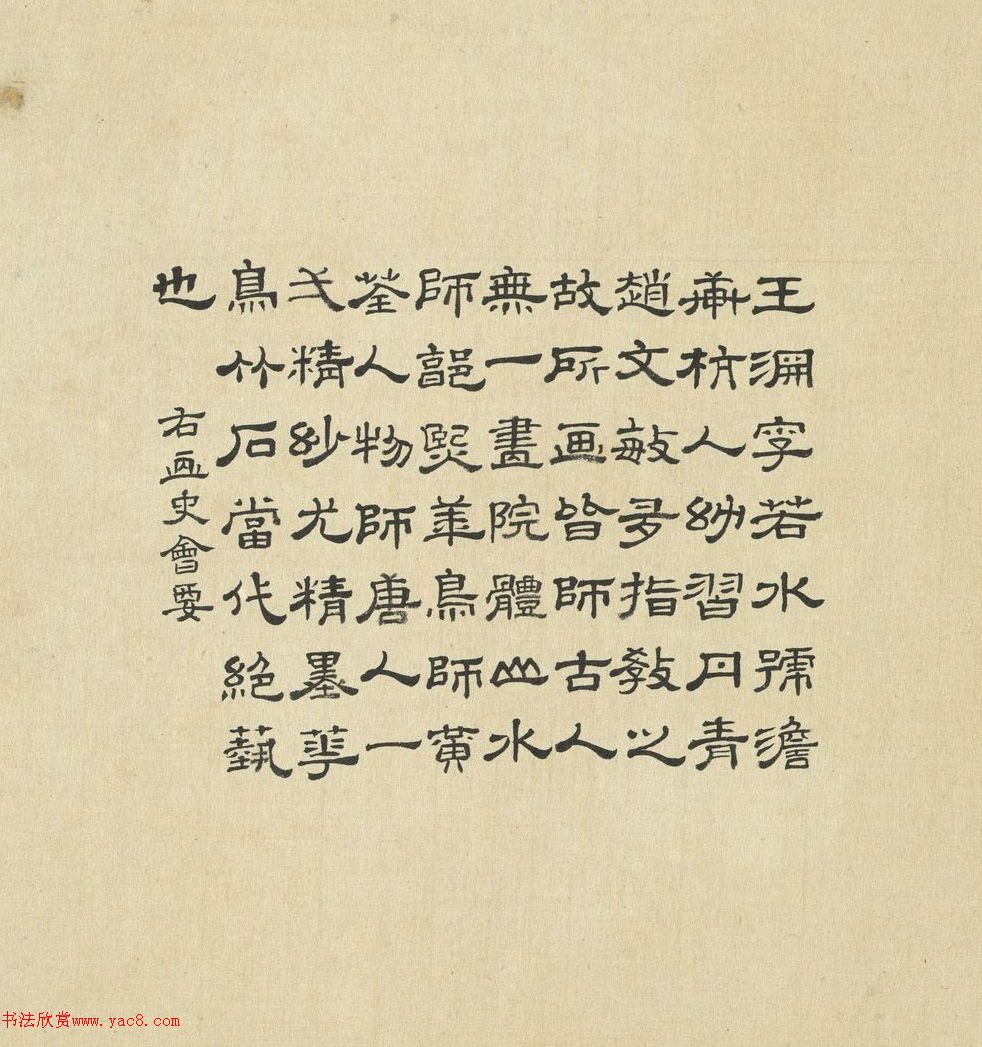 王淵字若水號澹
軒杭人幼習丹青
趙文敏多指教之
故所画皆師古人
無一畫院體山水
師郭熙華鳥師黃
荃人物師唐人一
弌精玅尤精墨華
鳥竹石當代絕藝
也
右画史會要
书法欣赏www.yac8.com